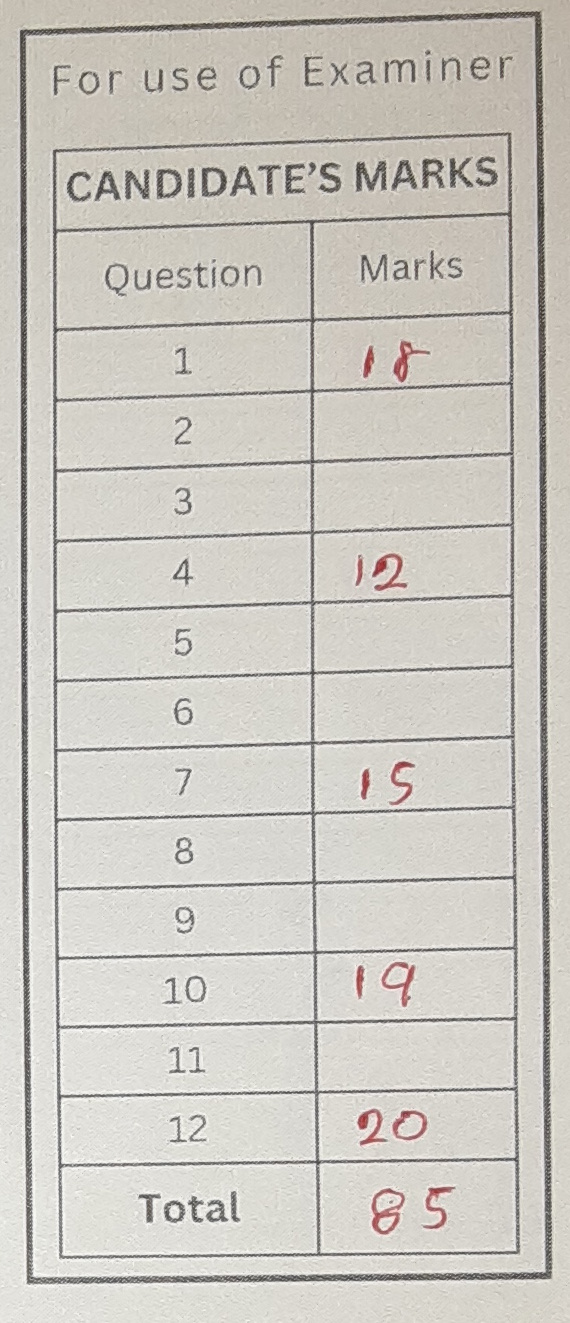 For use of Examiner
CANDIDATE'S MARKS
Question Marks
1 18
2
3
4 12
5
6
7 15
8
9
10 19
11
12 20
Total 85